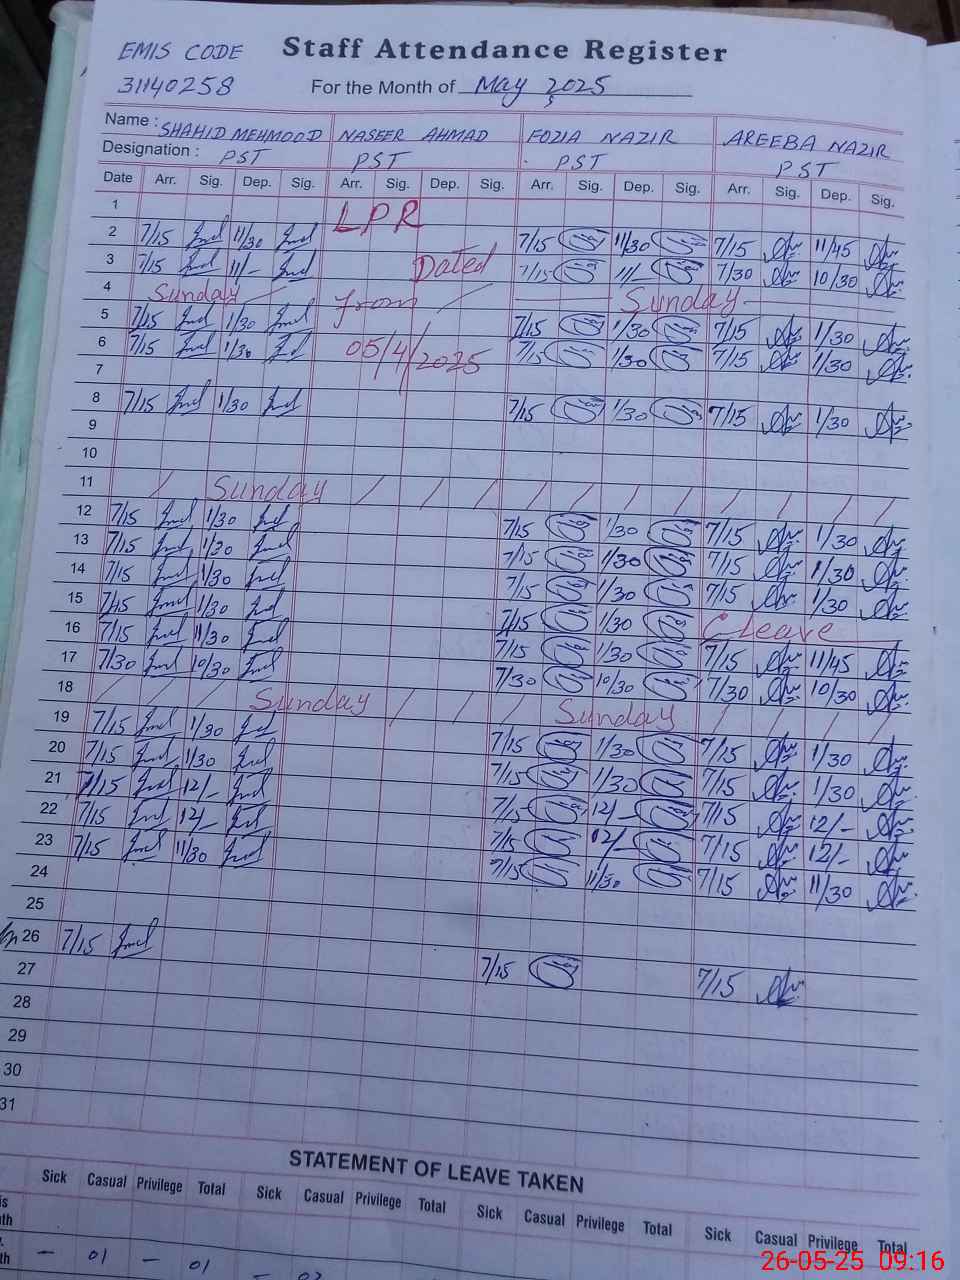 EMIS CODE Staff Attendance Register
31140258 For the Month of May 2025
Name : SHAHID MEHMOOD NASEER AHMAD FOZIA NAZIR AREEBA NAZIR
Designation : PST PST PST PST
Date Arr. Sig. Dep. Sig. Arr. Sig. Dep. Sig. Arr. Sig. Dep. Sig. Arr. Sig. Dep. Sig.
1 LPR
2 7/15 11/30 7/15 11/30 7/15 11/45
3 7/15 11/- Dated 7/15 11/- 7/30 10/30
4 Sunday from Sunday
5 7/15 1/30 7/15 1/30 7/15 1/30
6 7/15 1/30 05/4/2025 7/15 1/30 7/15 1/30
7
8 7/15 1/30 7/15 1/30 7/15 1/30
9
10
11 Sunday
12 7/15 1/30 7/15 1/30 7/15 1/30
13 7/15 1/30 7/15 1/30 7/15 1/30
14 7/15 1/30 7/15 1/30 7/15 1/30
15 7/15 1/30 7/15 1/30 C leave
16 7/15 11/30 7/15 1/30 7/15 11/45
17 7/30 10/30 7/30 10/30 7/30 10/30
18 Sunday Sunday
19 7/15 1/30 7/15 1/30 7/15 1/30
20 7/15 1/30 7/15 1/30 7/15 1/30
21 7/15 12/- 7/15 12/- 7/15 12/-
22 7/15 12/- 7/15 12/- 7/15 12/-
23 7/15 11/30 7/15 11/30 7/15 11/30
24
25
26 7/15 7/15 7/15
27
28
29
30
31
STATEMENT OF LEAVE TAKEN
Sick Casual Privilege Total Sick Casual Privilege Total Sick Casual Privilege Total Sick Casual Privilege Total
– 01 – 01 –
26-05-25 09:16